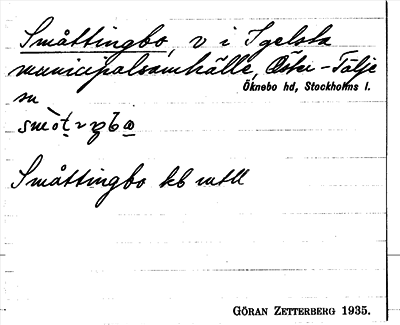 Småttingbo, v i Igelsta
municipalsamhälle, Öster-Tälje
sn
Öknebo hd, Stockholms l.
Småttingbo kb mtll
GÖRAN ZETTERBERG 1935.